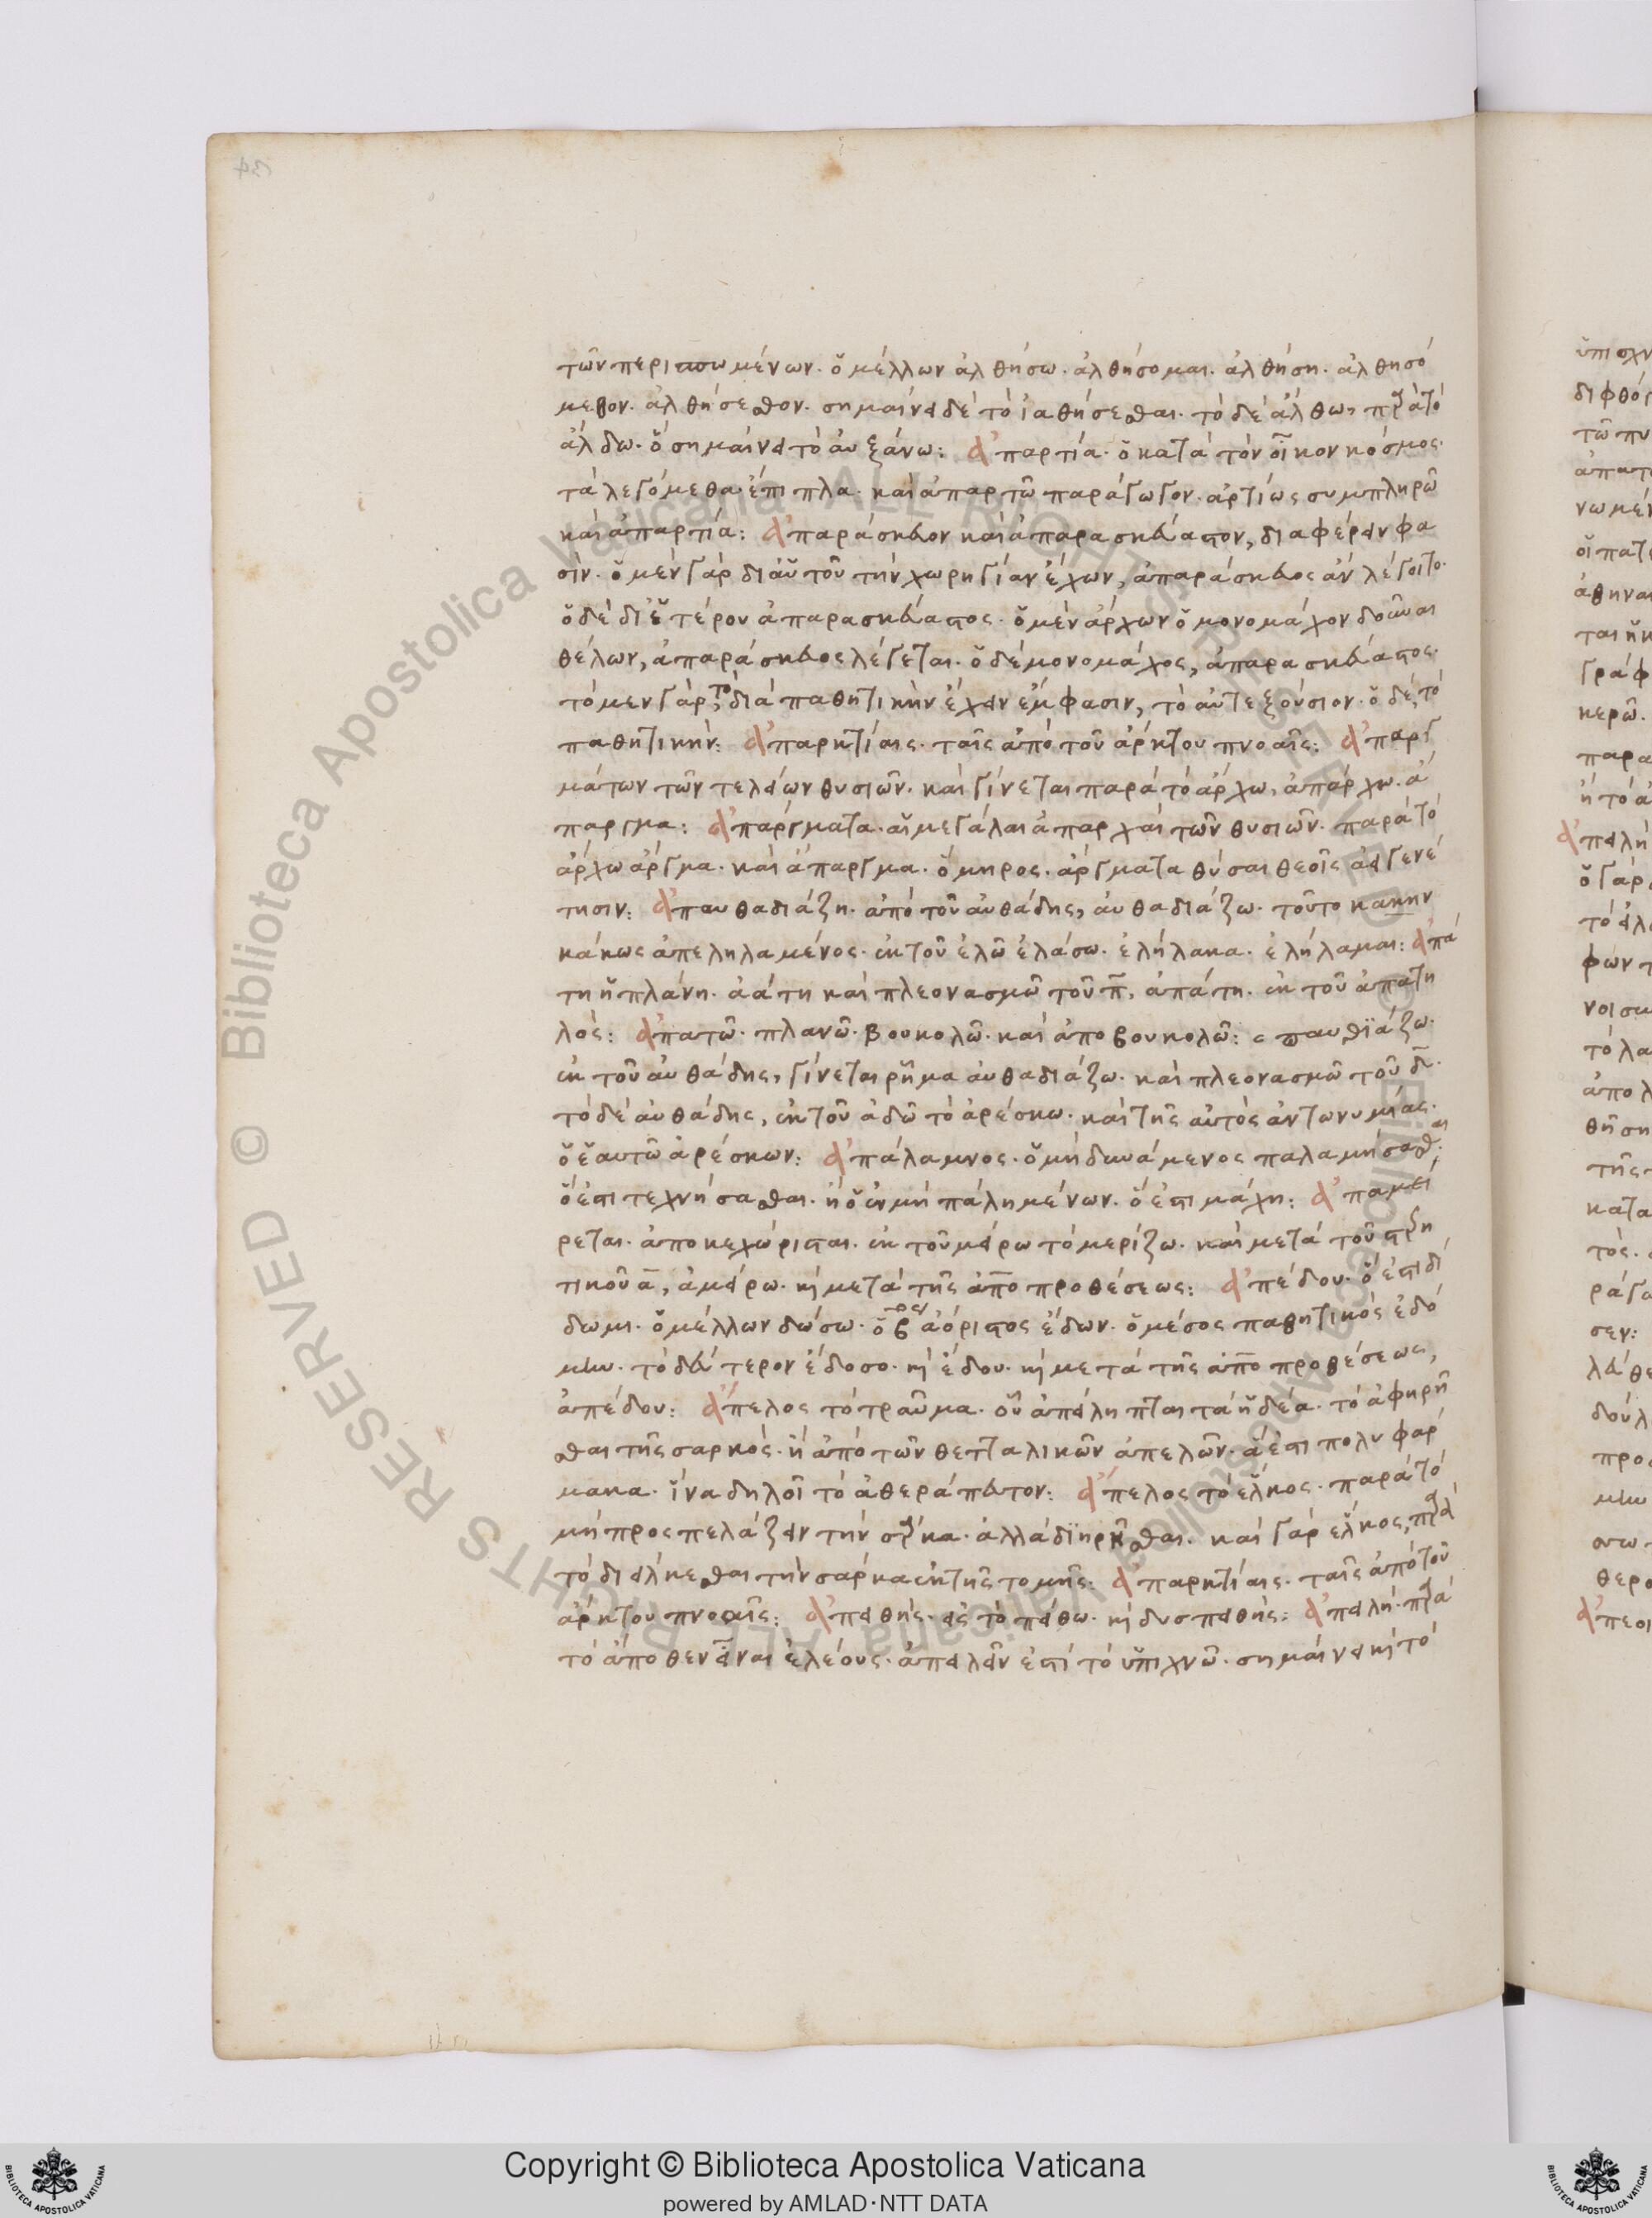 τῶν περισπωμένων· ὁ μέλλων ἀλθήσω· ἀλθήσομαι· ἀλθήση· ἀλθησό
μεθον· ἀλθήσεσθον· σημαίνει δὲ τὸ ἰαθήσεσθαι· τὸ δὲ ἄλθω, παρὰ τὸ
ἄλδω· ὃ σημαίνει τὸ αὐξάνω: ἀπαρτία· ὁ κατὰ τὸν οἶκον κόσμος·
τὰ λεγόμεθα ἔπιπλα· καὶ ἀπαρτῶ παράγωγον· ἀρτίως συμπληρῶ
καὶ ἀπαρτία: ἀπαράσκευον καὶ ἀπαρασκεύαστον, διαφέρειν φα
σίν· ὁ μὲν γὰρ δι αὑτοῦ τὴν χωρηγίαν ἔχων, ἀπαράσκευος ἂν λέγοιτο·
ὁ δὲ δι ἑτέρου ἀπαρασκεύαστος· ὁ μὲν ἄρχων ὁ μονομάχον δοῦναι
θέλων, ἀπαράσκευος λέγεται· ὁ δὲ μονομάχος, ἀπαρασκεύαστος·
τὸ μεν γὰρ, το διὰ παθητικὴν ἔχειν ἔμφασιν, τὸ αὐτεξούσιον· ὁ δὲ τὸ
παθητικήν: ἀπαρκτίαις· ταῖς ἀπὸ τοῦ ἄρκτου πνοαῖς: ἀπαργ
μάτων τῶν τελείων θυσιῶν· καὶ γίνεται παρὰ τὸ ἄρχω, ἀπάρχω· ἄ
παργμα: ἀπάργματα· αἱ μεγάλαι ἀπαρχαὶ τῶν θυσιῶν· παρὰ τὸ
ἄρχω ἄργμα· καὶ ἄπαργμα· ὅμηρος· ἄργματα θύσαι θεοῖς ἀειγενέ
τησιν: ἀπαυθαδιάζη· ἀπὸ τοῦ αὐθάδης, αὐθαδιάζω· τοῦτο κακην
κάκως ἀπεληλαμένος· ἐκ τοῦ ἐλῶ ἐλάσω· ἐλήλακα· ἐλήλαμαι: ἀπά
τη ἡ πλάνη· ἀάτη καὶ πλεονασμῶ τοῦ π, ἀπάτη· ἐκ τοῦ ἀπατη
λός: ἀπατῶ· πλανῶ· βουκολῶ· καὶ ἀποβουκολῶ:
ἐκ τοῦ αὐθάδης, γίνεται ρῆμα αὐθαδιάζω· καὶ πλεονασμῶ τοῦ δ·
τὸ δὲ αὐθάδης, ἐκ τοῦ ἁδῶ τὸ ἀρέσκω· καὶ τῆς αὐτός ἀντωνυμίας·
ὁ ἑαυτῶ ἀρέσκων: ἀπάλαμνος· ὁ μὴ δυνάμενος παλαμήσασθαι·
ὅ ἐστι τεχνήσασθαι· ἢ ὁ ἐν μὴ πάλη μένων· ὅ ἐστι μάχη: ἀπαμεί
ρεται· ἀποκεχώρισται· ἐκ τοῦ μείρω τὸ μερίζω· καὶ μετὰ τοῦ στερη
τικοῦ α, ἀμείρω· καὶ μετὰ τῆς ἀπο προθέσεως: ἀπέδου· ὅ ἐστι δί
δωμι· ὁ μέλλων δώσω· ὁ β ἀόριστος ἔδων· ὁ μέσος παθητικός ἐδό
μην· τὸ δεύτερον ἔδοσο· καὶ ἔδου· καὶ μετὰ τῆς ἀπο προθέσεως,
ἀπέδου: ἄπελος τὸ τραῦμα· οὗ ἀπείληπται τὰ ἡδέα· τὸ ἀφηρῆ
σθαι τῆς σαρκός· ἢ ἀπὸ τῶν θετταλικῶν ἀπελῶν· ἅ ἐστι πολυφάρ
μακα· ἵνα δηλοῖ τὸ ἀθεράπευτον: ἄπελος τὸ ἕλκος· παρὰ τὸ
μὴ προσπελάζειν τὴν σάρκα· ἀλλὰ διηρῆσθαι· καὶ γὰρ ἕλκος, παρὰ
τὸ διειλκεσθαι τὴν σάρκα ἐκ τῆς τομῆς: ἀπαρκτίαις· ταῖς ἀπὸ τοῦ
ἄρκτου πνοαῖς: ἀπειθής· εἰς τὸ πείθω· καὶ δυσπειθής: ἀπειλή· παρὰ
τὸ ἀποθεν εἶναι ἐλέους· ἀπειλεῖν ἐστὶ τὸ ὑπισχνῶ· σημαίνει καὶ τὸ
Copyright © Biblioteca Apostolica Vaticana
powered by AMLAD·NTT DATA